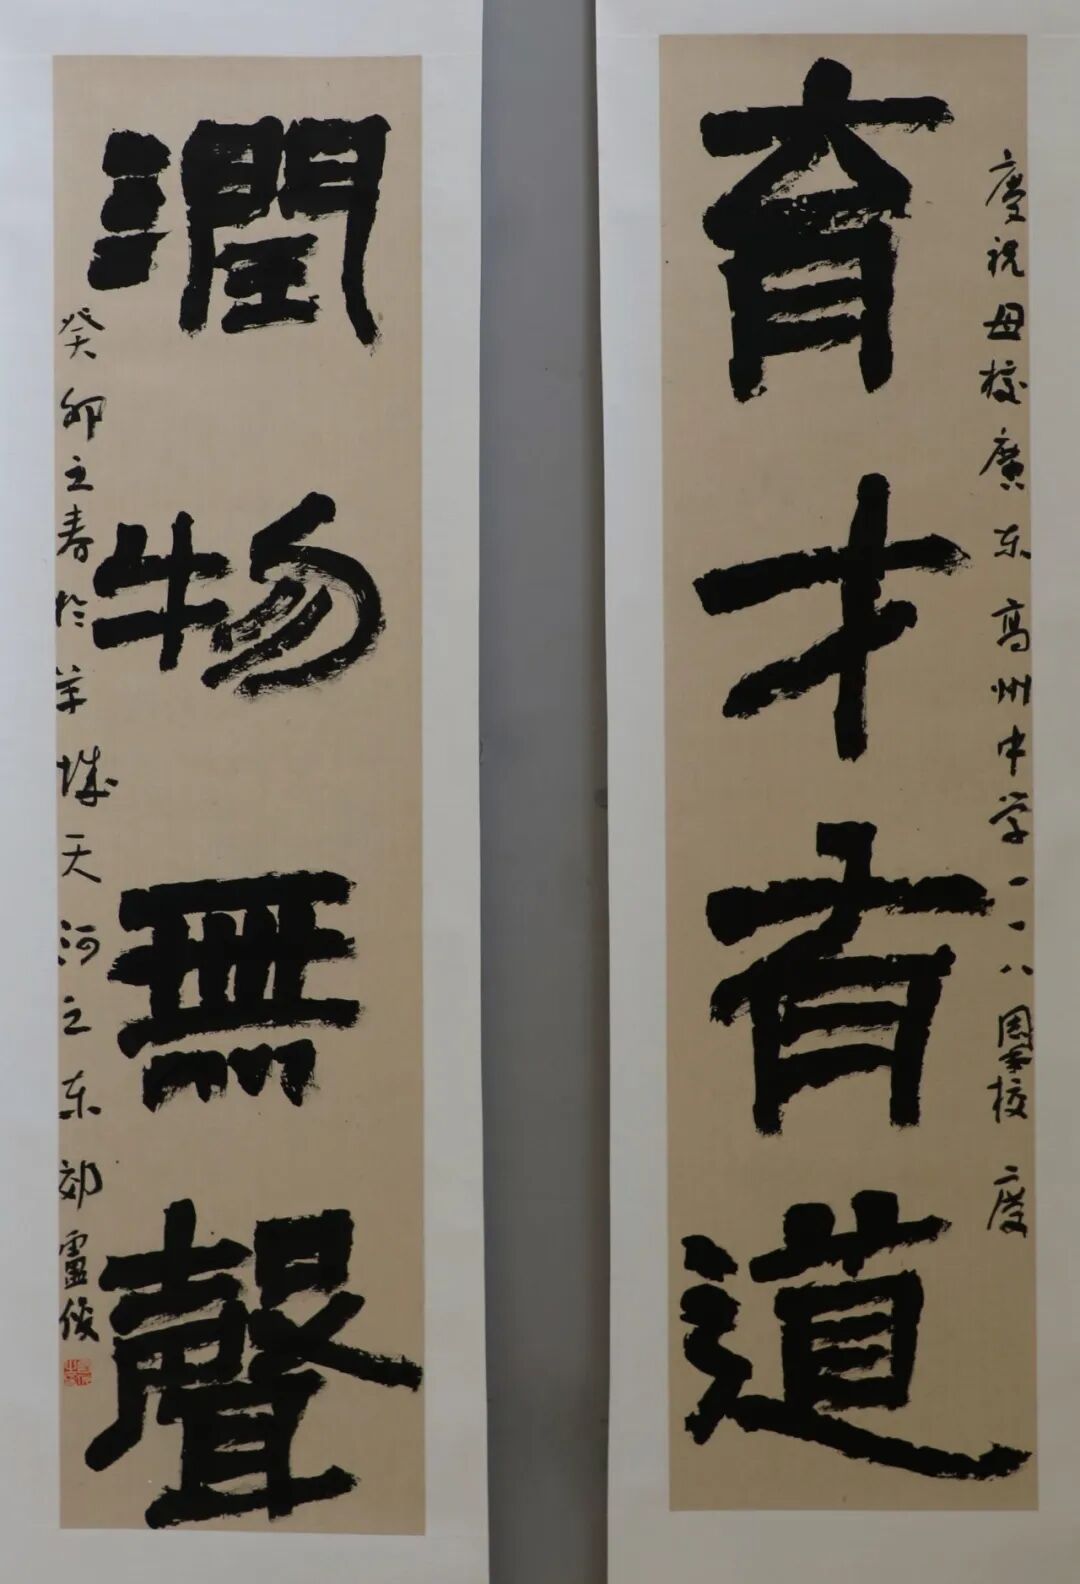 慶祝母校廣东高州中学一一八周年校慶
育才有道
潤物無聲
癸卯之春於羊城天河之东郊盧俊